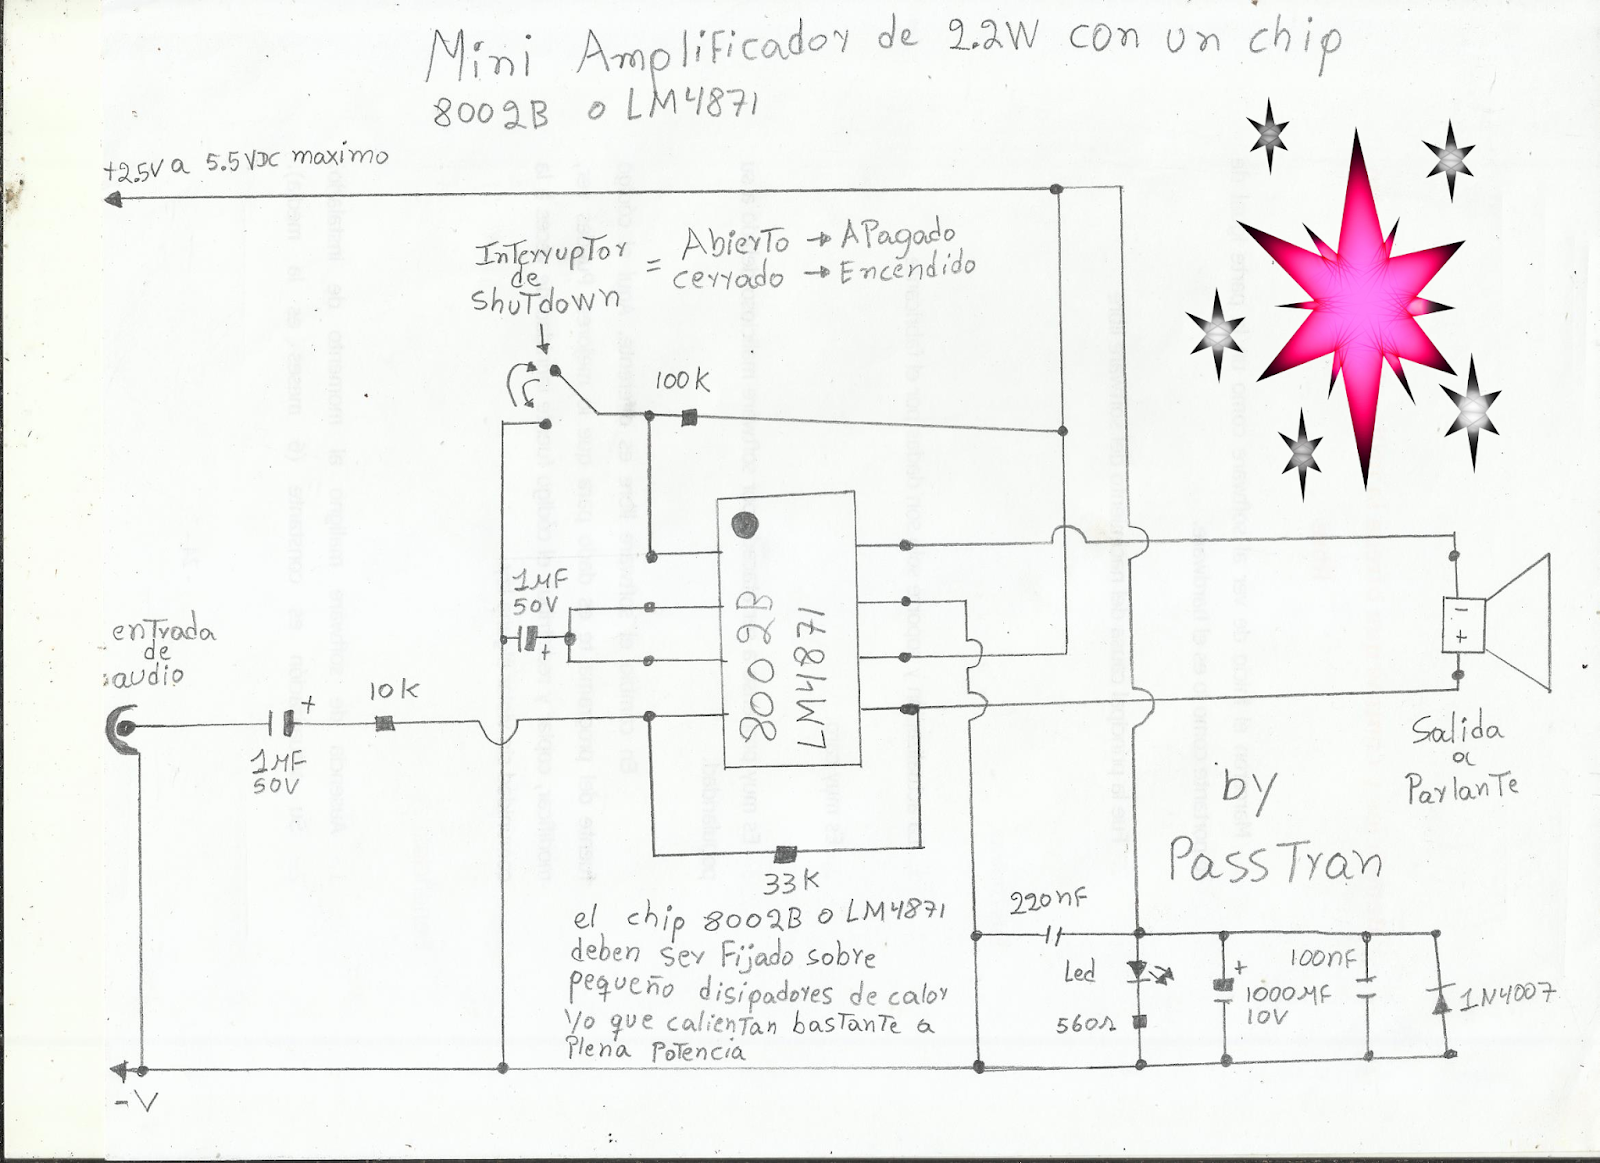 Mini Amplificador de 2.2W con un chip
8002B o LM4871
+2.5V a 5.5VDC maximo
Interruptor
de
Shutdown
= Abierto → APagado
cerrado → Encendido
100K
1MF
50V
+
8002B
LM4871
-
+
entrada
de
audio
+
10K
1MF
50V
Salida
a
Parlante
by
PassTran
33K
el chip 8002B o LM4871
deben ser Fijado sobre
pequeño disipadores de calor
Yo que calientan bastante a
Plena Potencia
220nF
Led
560Ω
+
1000MF
10V
100nF
1N4007
-V